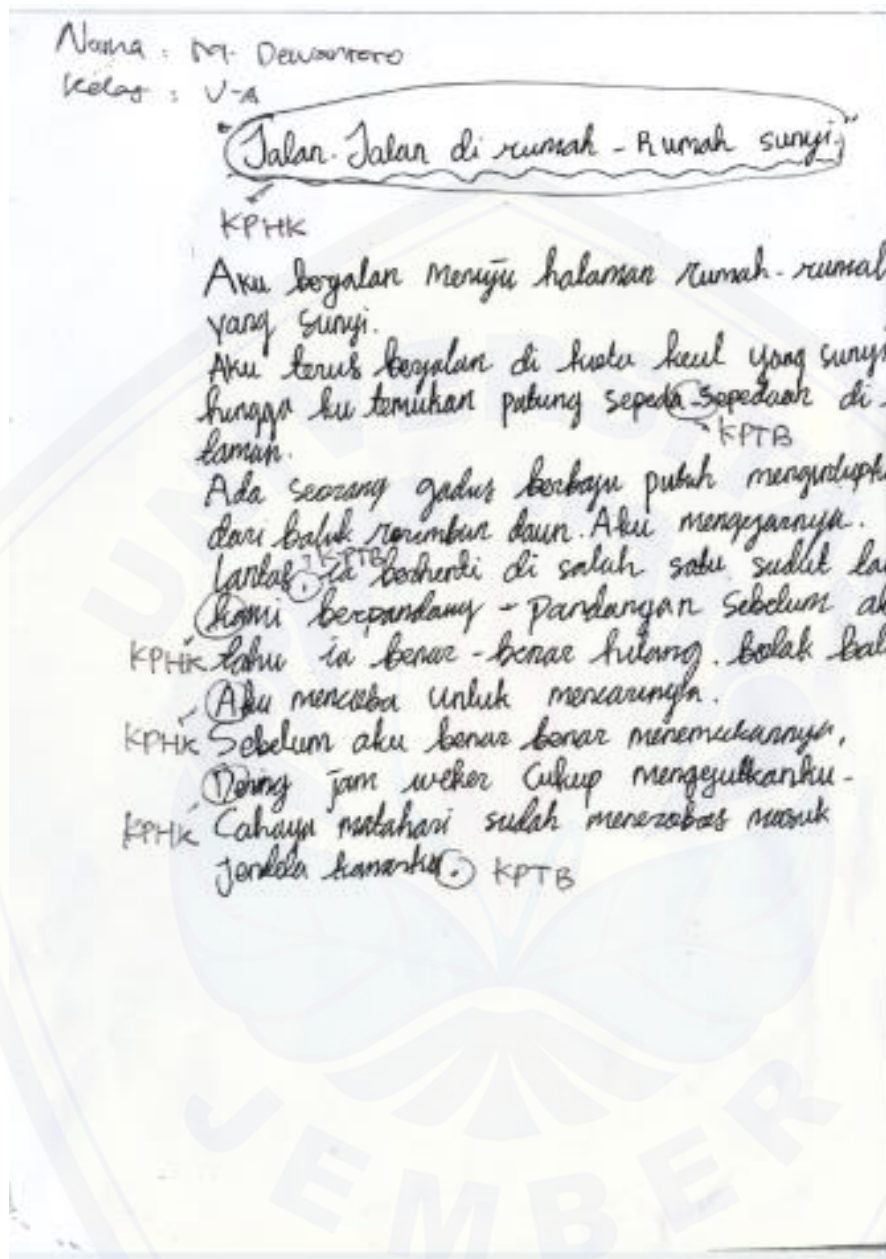 Nama : M. Dewantoro
Kelas : V-A
"Jalan-Jalan di rumah - Rumah sunyi."
KPHK
Aku berjalan menuju halaman rumah-rumah
yang sunyi.
Aku terus berjalan di kota kecil yang sunyi
hingga ku temukan patung sepeda-sepedaan di
KPTB
taman.
Ada seorang gadis berbaju putih
dari balik rerimbun daun. Aku mengejarnya.
KPTB
Lantas. ia berhenti di salah satu sudut
kami berpandang - Pandangan sebelum
KPHK tahu ia benar-benar hilang. bolak
Aku mencoba untuk mencarinya.
KPHK Sebelum aku benar benar menemukannya,
Dering jam weker cukup mengejutkanku.
KPHK Cahaya matahari sudah menerobos masuk
jendela kamarku. KPTB
UNIVERSI
JEMBER